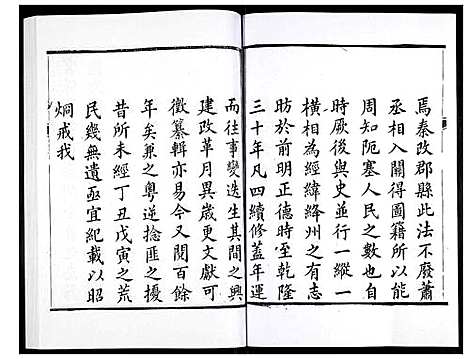 焉秦改郡縣此法不廢蕭
丞相入關得圖籍所以能
周知阨塞人民之數也自
時厥後與史並行一縱一
橫相為經緯絳州之有志
昉於前明正德時至乾隆
三十年凡四續修蓋年運
而往事變迭生其間之興
建改革月異歲更文獻可
徵纂輯亦易今又閱百餘
年矣兼之粵逆捻匪之擾
昔所未經丁丑戊寅之荒
民幾無遺亟宜紀載以昭
烱戒我